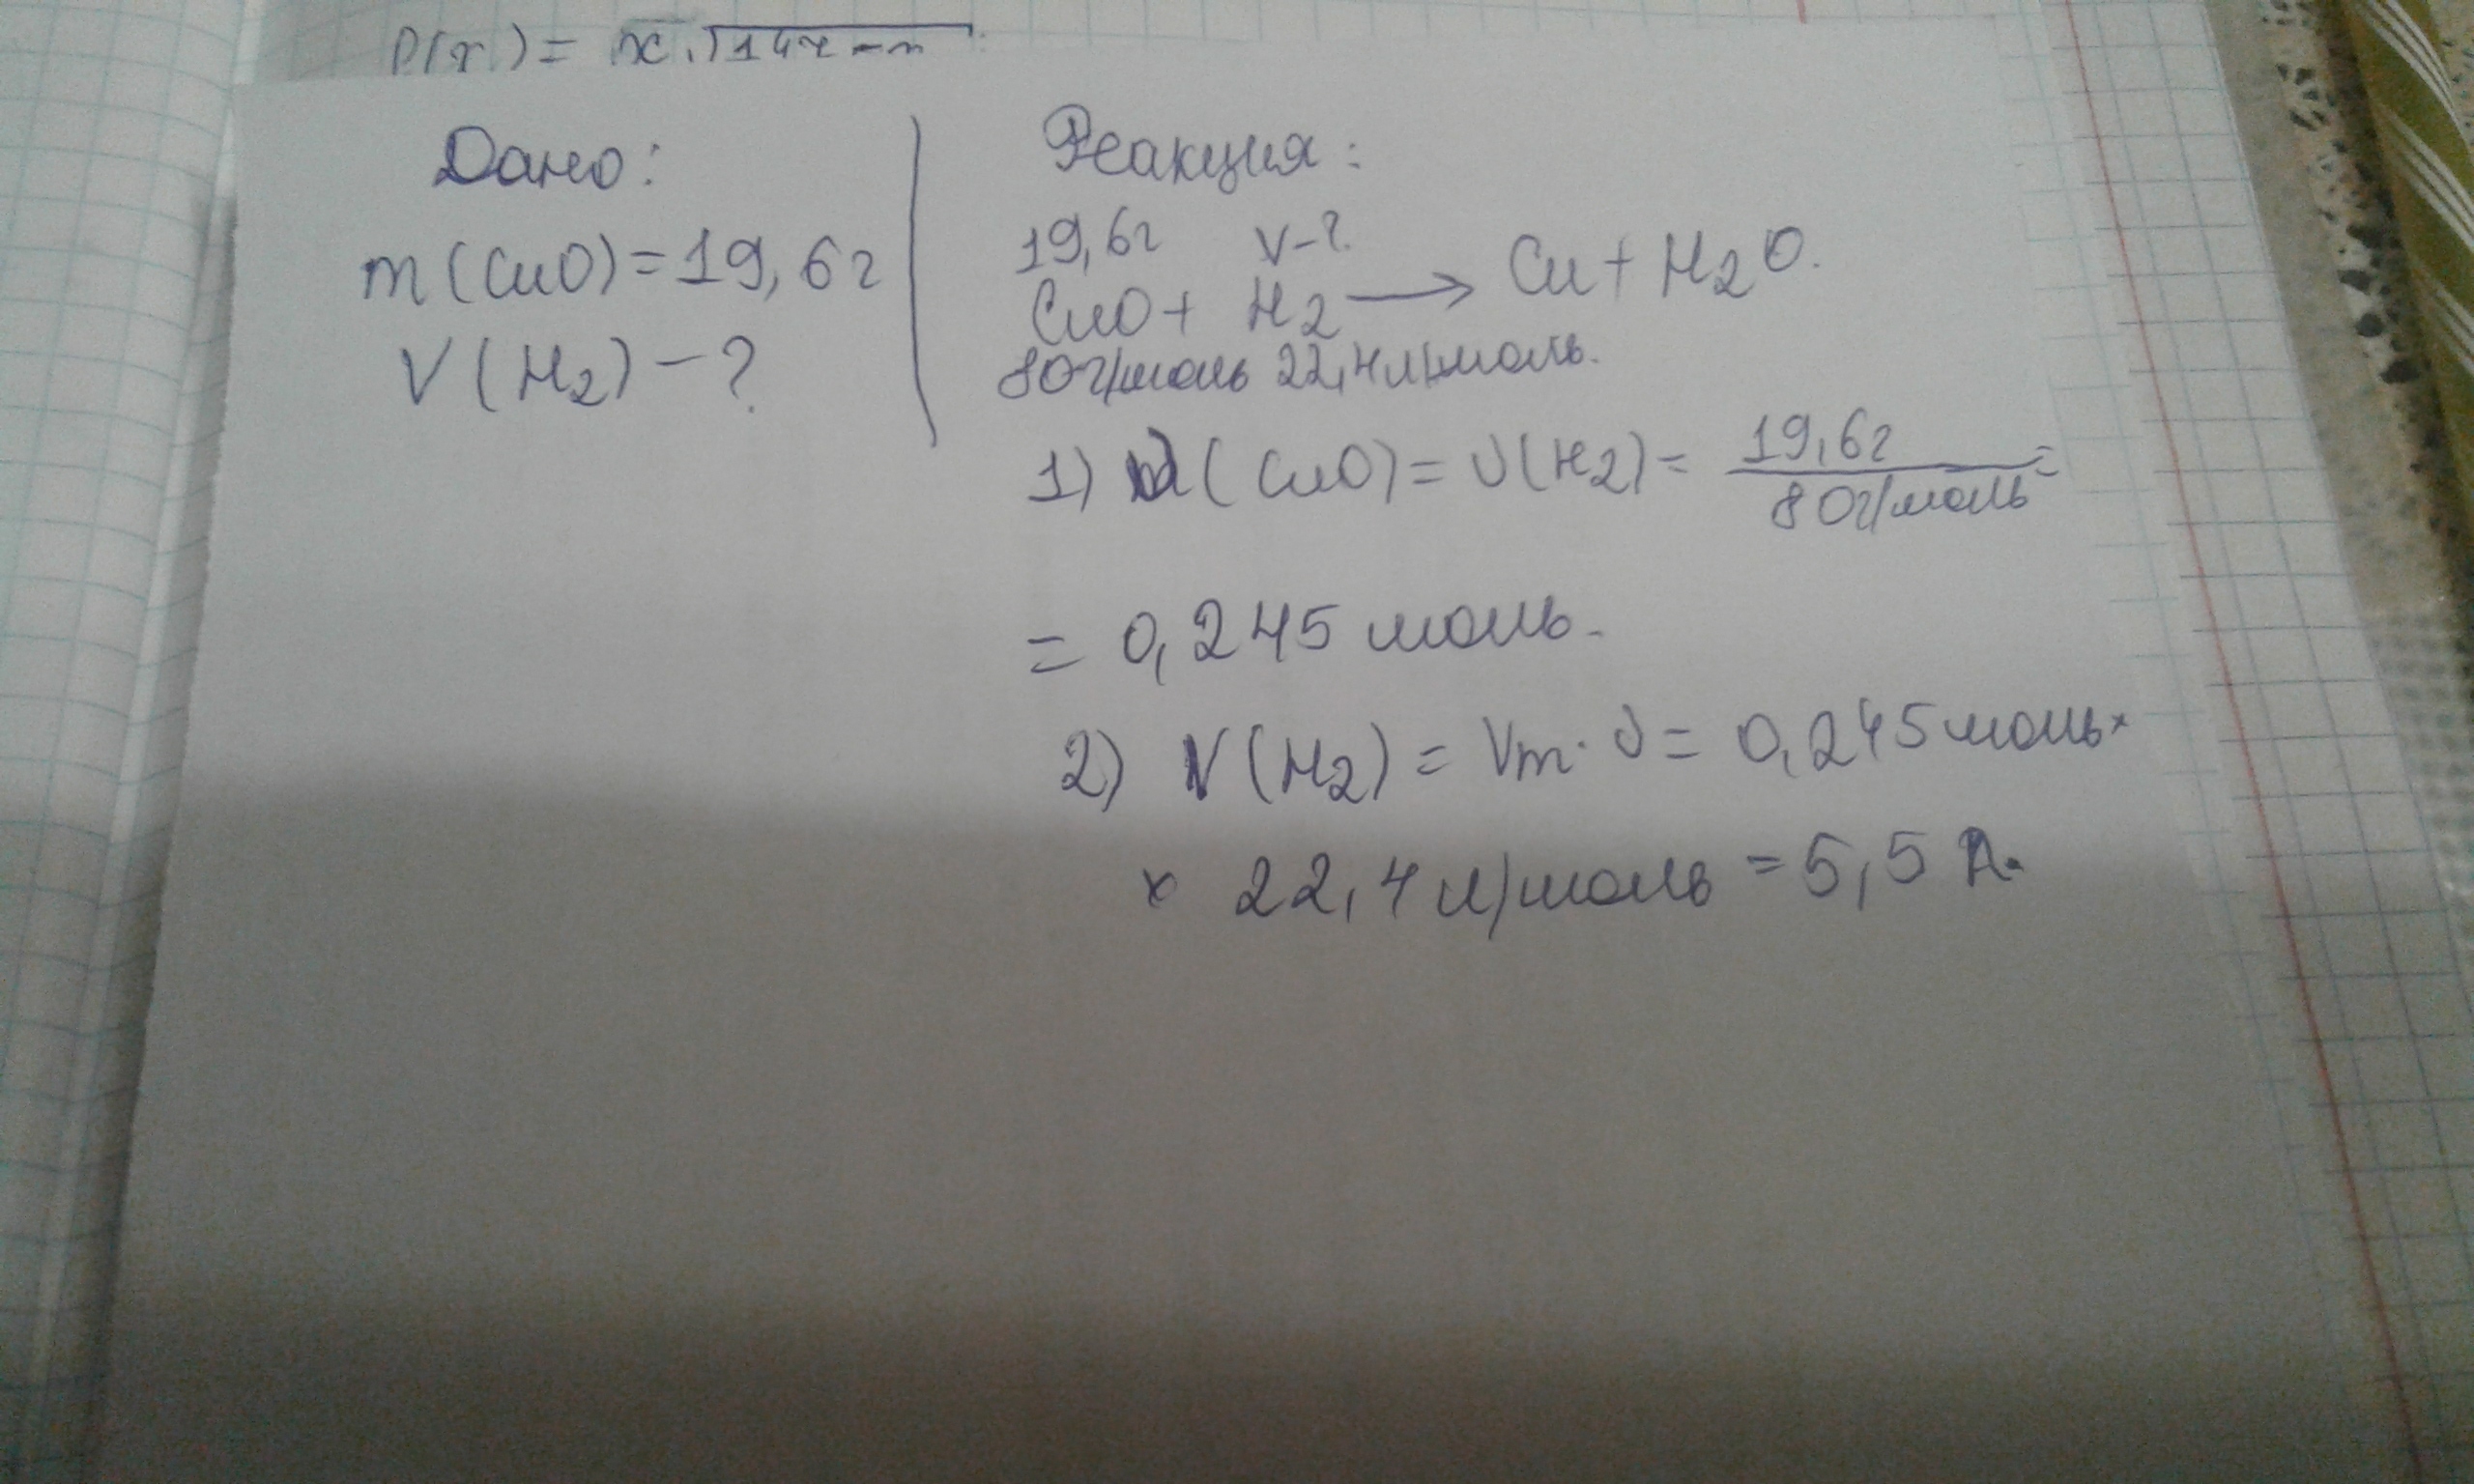 Дано:
m (CuO) = 19,6г
V (H2) - ?
Реакция:
19,6г V-?
CuO + H2 → Cu + H2O.
80г/моль 22,4л/моль.
1) ν (CuO) = ν(H2) = 19,6г / 80г/моль =
= 0,245 моль.
2) V (H2) = Vm · ν = 0,245 моль ×
× 22,4 л/моль = 5,5 л.